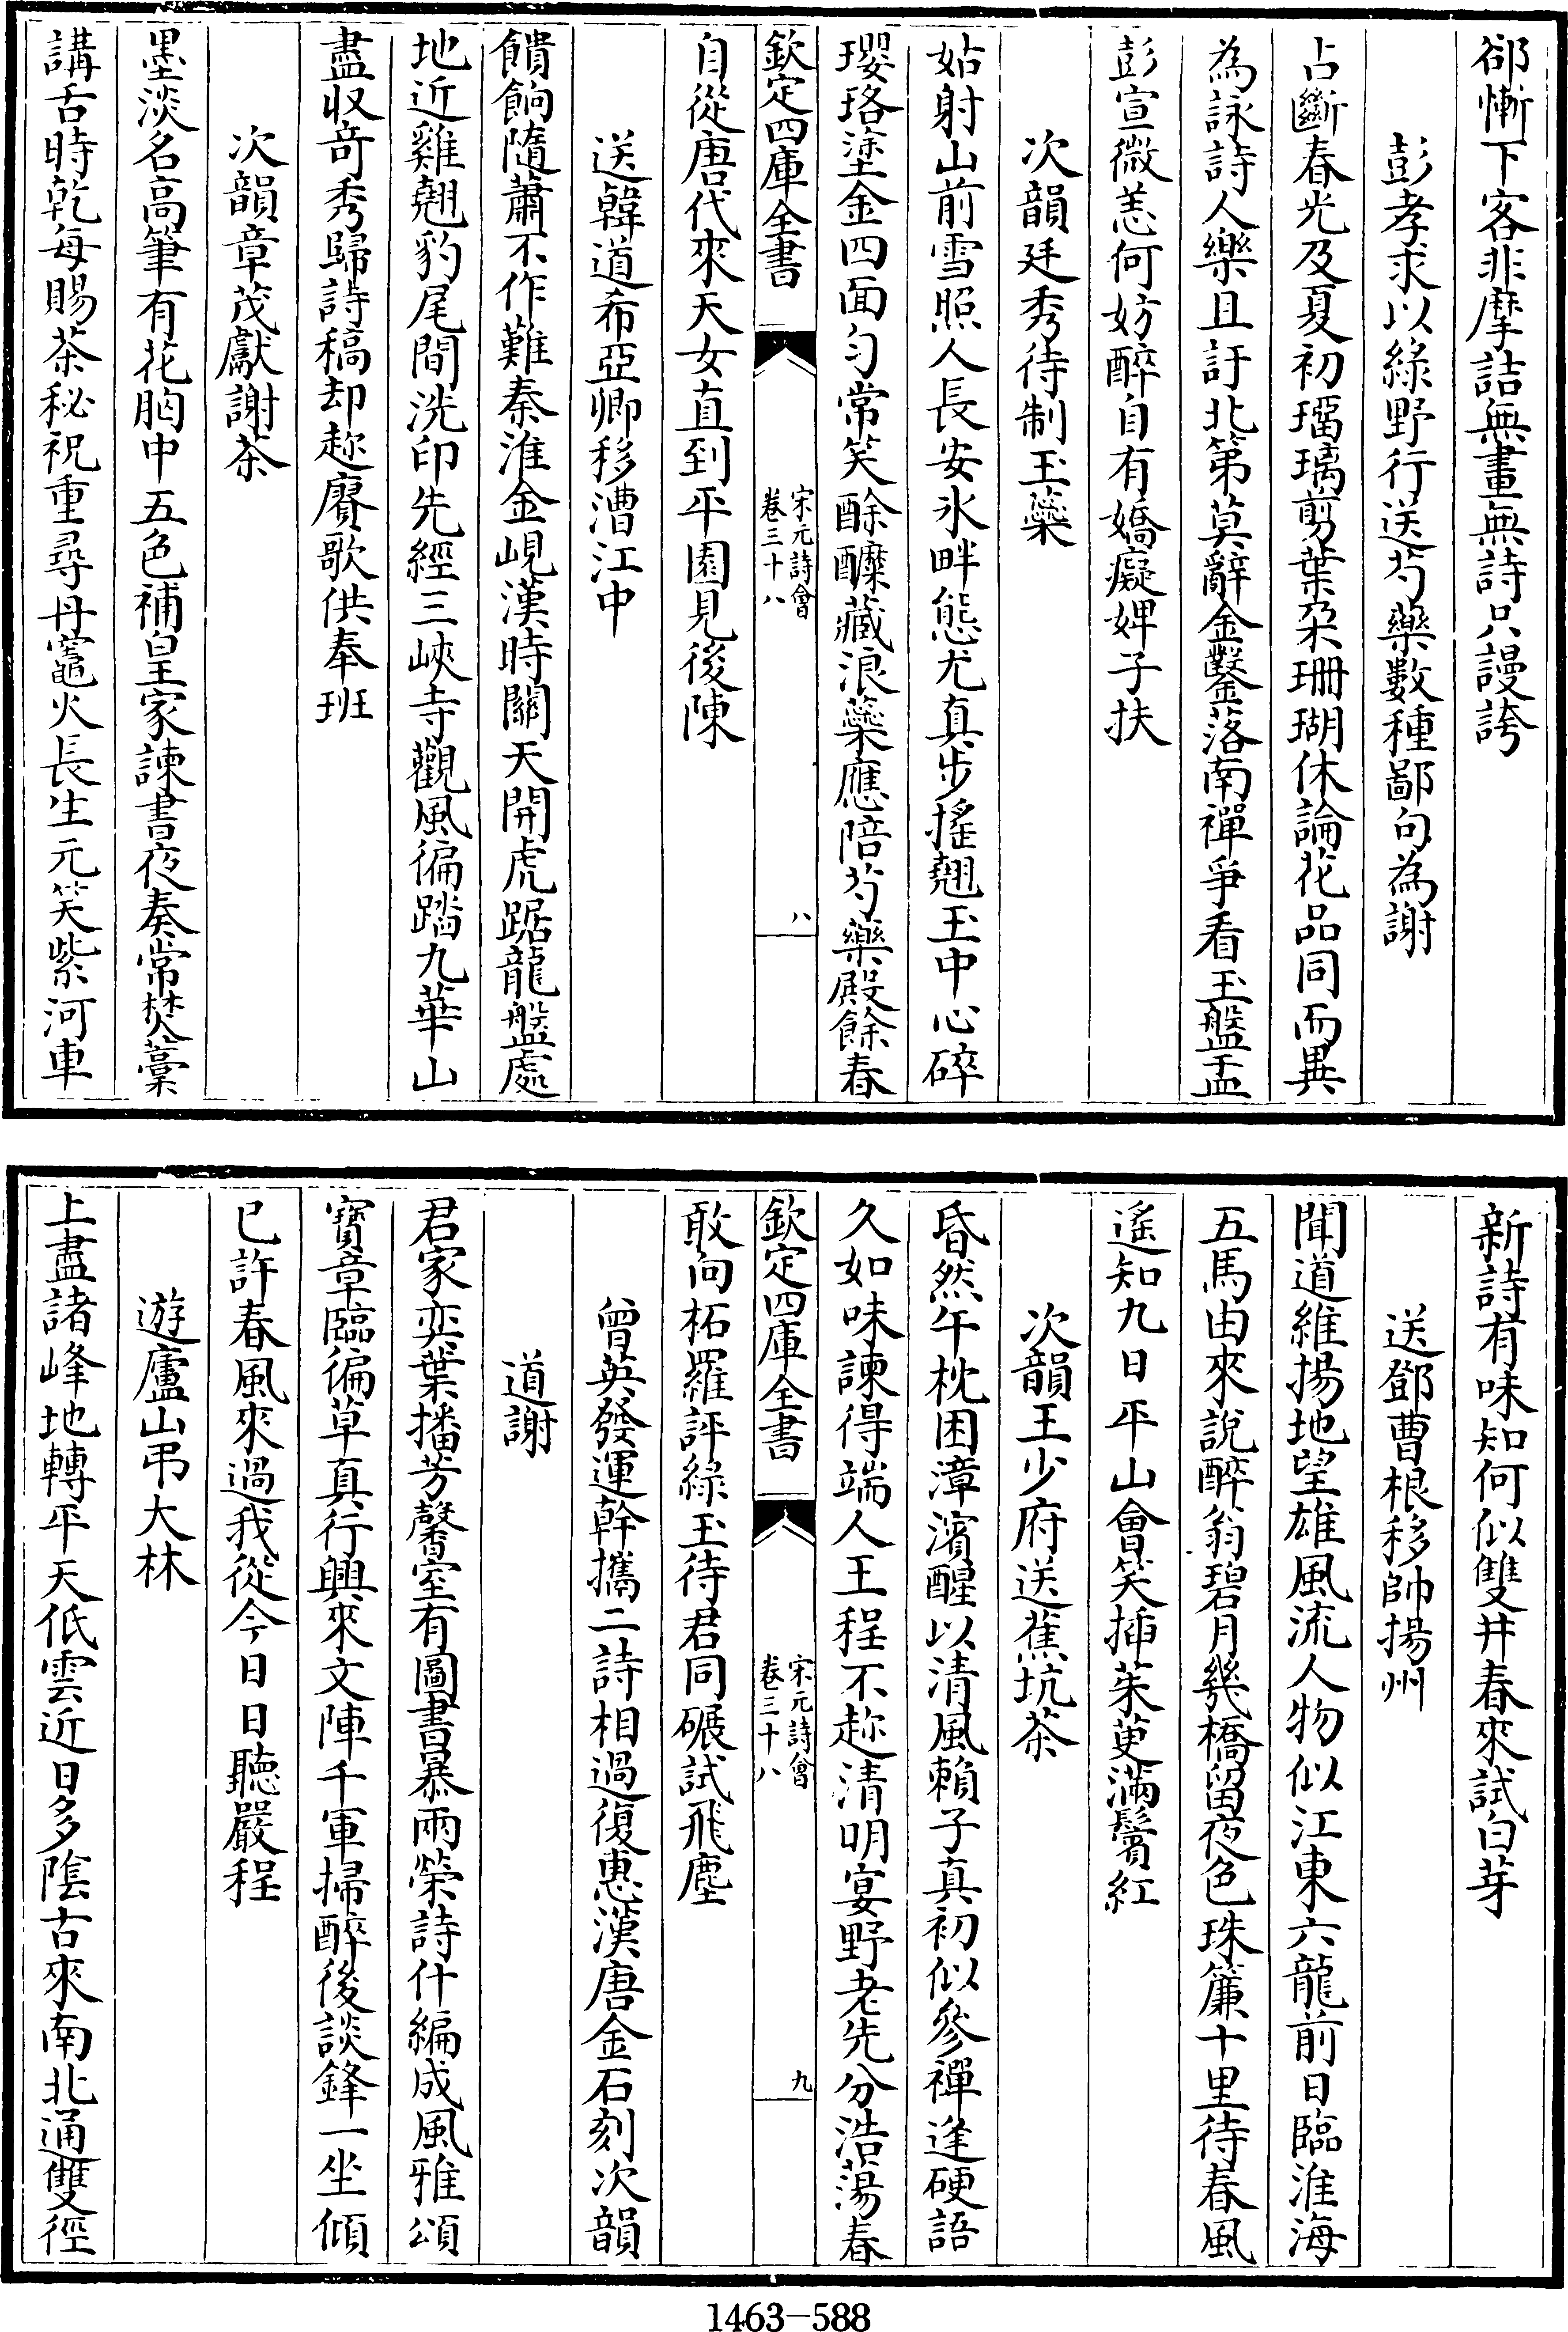 郤慚下客非摩詰無畫無詩只謾誇
彭孝求以綠野行送芍藥數種鄙句為謝
占斷春光及夏初瑠璃剪葉朶珊瑚休論花品同而異
為詠詩人樂且訏北第莫辭金鑿落南禪爭看玉盤盂
彭宣微恙何妨醉自有嬌癡婢子扶
次韻廷秀待制玉蘂
姑射山前雪照人長安水畔態尤真步搖翹玉中心碎
瓔珞塗金四面勻常笑酴醾藏浪蘂應陪芍藥殿餘春
欽定四庫全書
宋元詩會
卷三十八
八
自從唐代來天女直到平園見後陳
送韓道希亞卿移漕江中
饋餉隨蕭不作難秦淮金峴漢時關天開虎踞龍盤處
地近雞翹豹尾間洗印先經三峽寺觀風徧踏九華山
盡収奇秀歸詩稿却趂賡歌供奉班
次韻章茂獻謝茶
墨淡名高筆有花胸中五色補皇家諫書夜奏常焚藁
講舌時乾每賜茶秘祝重尋丹竈火長生元笑紫河車
新詩有味知何似雙井春來試白芽
送鄧曹根移帥揚州
聞道維揚地望雄風流人物似江東六龍前日臨淮海
五馬由來說醉翁碧月幾橋留夜色珠簾十里待春風
遙知九日平山會笑揷茱萸滿鬢紅
次韻王少府送蕉坑茶
昏然午枕困漳濱醒以清風賴子真初似參禪逢硬語
久如味諫得端人王程不趂清明宴野老先分浩蕩春
欽定四庫全書
宋元詩會
卷三十八
九
敢向柘羅評綠玉待君同碾試飛塵
曾英發運幹攜二詩相過復惠漢唐金石刻次韻
道謝
君家奕葉播芳馨室有圖書暴雨榮詩什編成風雅頌
寶章臨徧草真行興來文陣千軍掃醉後談鋒一坐傾
已許春風來過我從今日日聽嚴程
遊廬山弔大林
上盡諸峰地轉平天低雲近日多陰古來南北通雙徑
1463-588